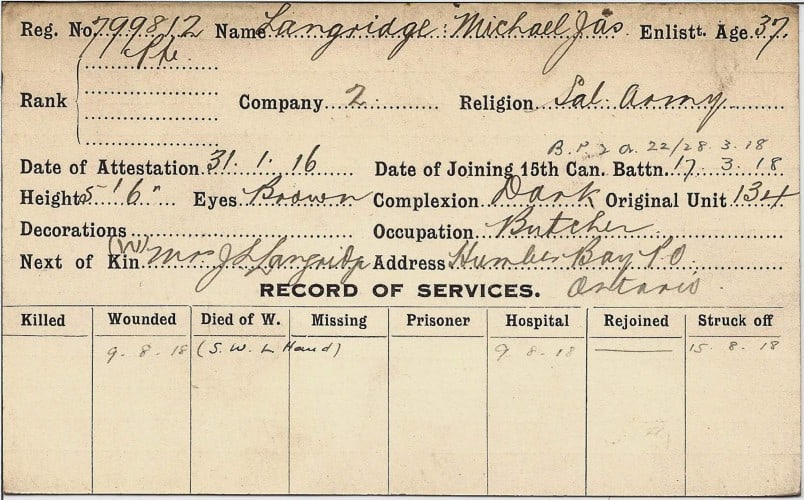 Reg. No. 799812 Name Langridge Michael Jas. Enlistt. Age 37.
Pte.
Rank Company 2 Religion Sal. Army
B.P. 2 O. 22/28 3.18
Date of Attestation 31. 1. 16 Date of Joining 15th Can. Battn. 17 3.18
Height 5'6" Eyes Brown Complexion Dark Original Unit 134
Decorations Occupation Butcher
Next of Kin (W) Mrs J L Langridge Address Humber Bay P.O.
RECORD OF SERVICES. Ontario.
Killed Wounded Died of W. Missing Prisoner Hospital Rejoined Struck off
9. 8. 18 (S. W. L Hand) 9 8. 18 15. 8. 18